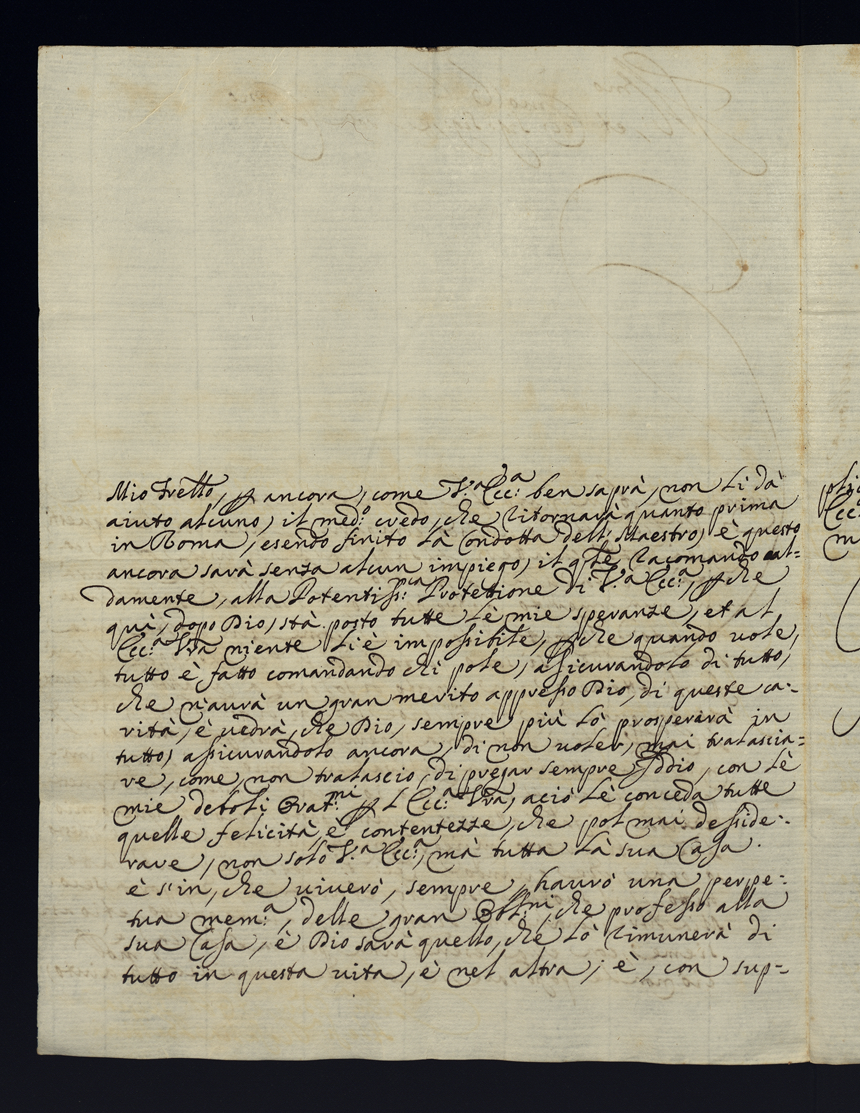 Mio Frello, ꝑ ancora, come V.ᵃ Ecc.ᵃ ben saprà, non li dà
aiuto alcuno, il med.º credo, che ritornarà quanto prima
in Roma, esendo finito la Condotta dell Maestro, è questo
ancora sarà senza alcun impiego, il q.ˡᵉ racomando cal=
damente, alla Potentiss.ᵐᵃ Protettione di V.ᵃ Ecc.ᵃ, ꝑche
quà, dopo Dio, stà posto tutte lè mie speranze, et al
Ecc.ᵃ Vrã niente li è impossibile, ꝑche quando uole,
tutto è fatto comandando chi pole, assicurandolo di tutto,
che n'aurà un gran merito appresso Dio, di queste ca=
rità, è uedrà, che Dio, sempre più lò prosperarà in
tutto, assicurandolo ancora, di non uoler, mai tralascia=
re, come, non tralascio, di pregar sempre Iddio, con lè
mie deboli Orat.ⁿⁱ ꝑ l Ecc.ᵃ Vrã, aciò lè conceda tutte
quelle felicità, è contentezze, che pol mai desside=
rare, non solò V.ᵃ Ecc.ᵃ, mà tutta là sua Casa.
è s'in, che uiuerò, sempre, haurò una perpe=
tua mem.ᵃ, delle gran Obb.ⁿⁱ, che professo alla
sua Casa, è Dio sarà quello, che lò rimunerà di
tutto in questa uita, è nel altra, è, con sup=